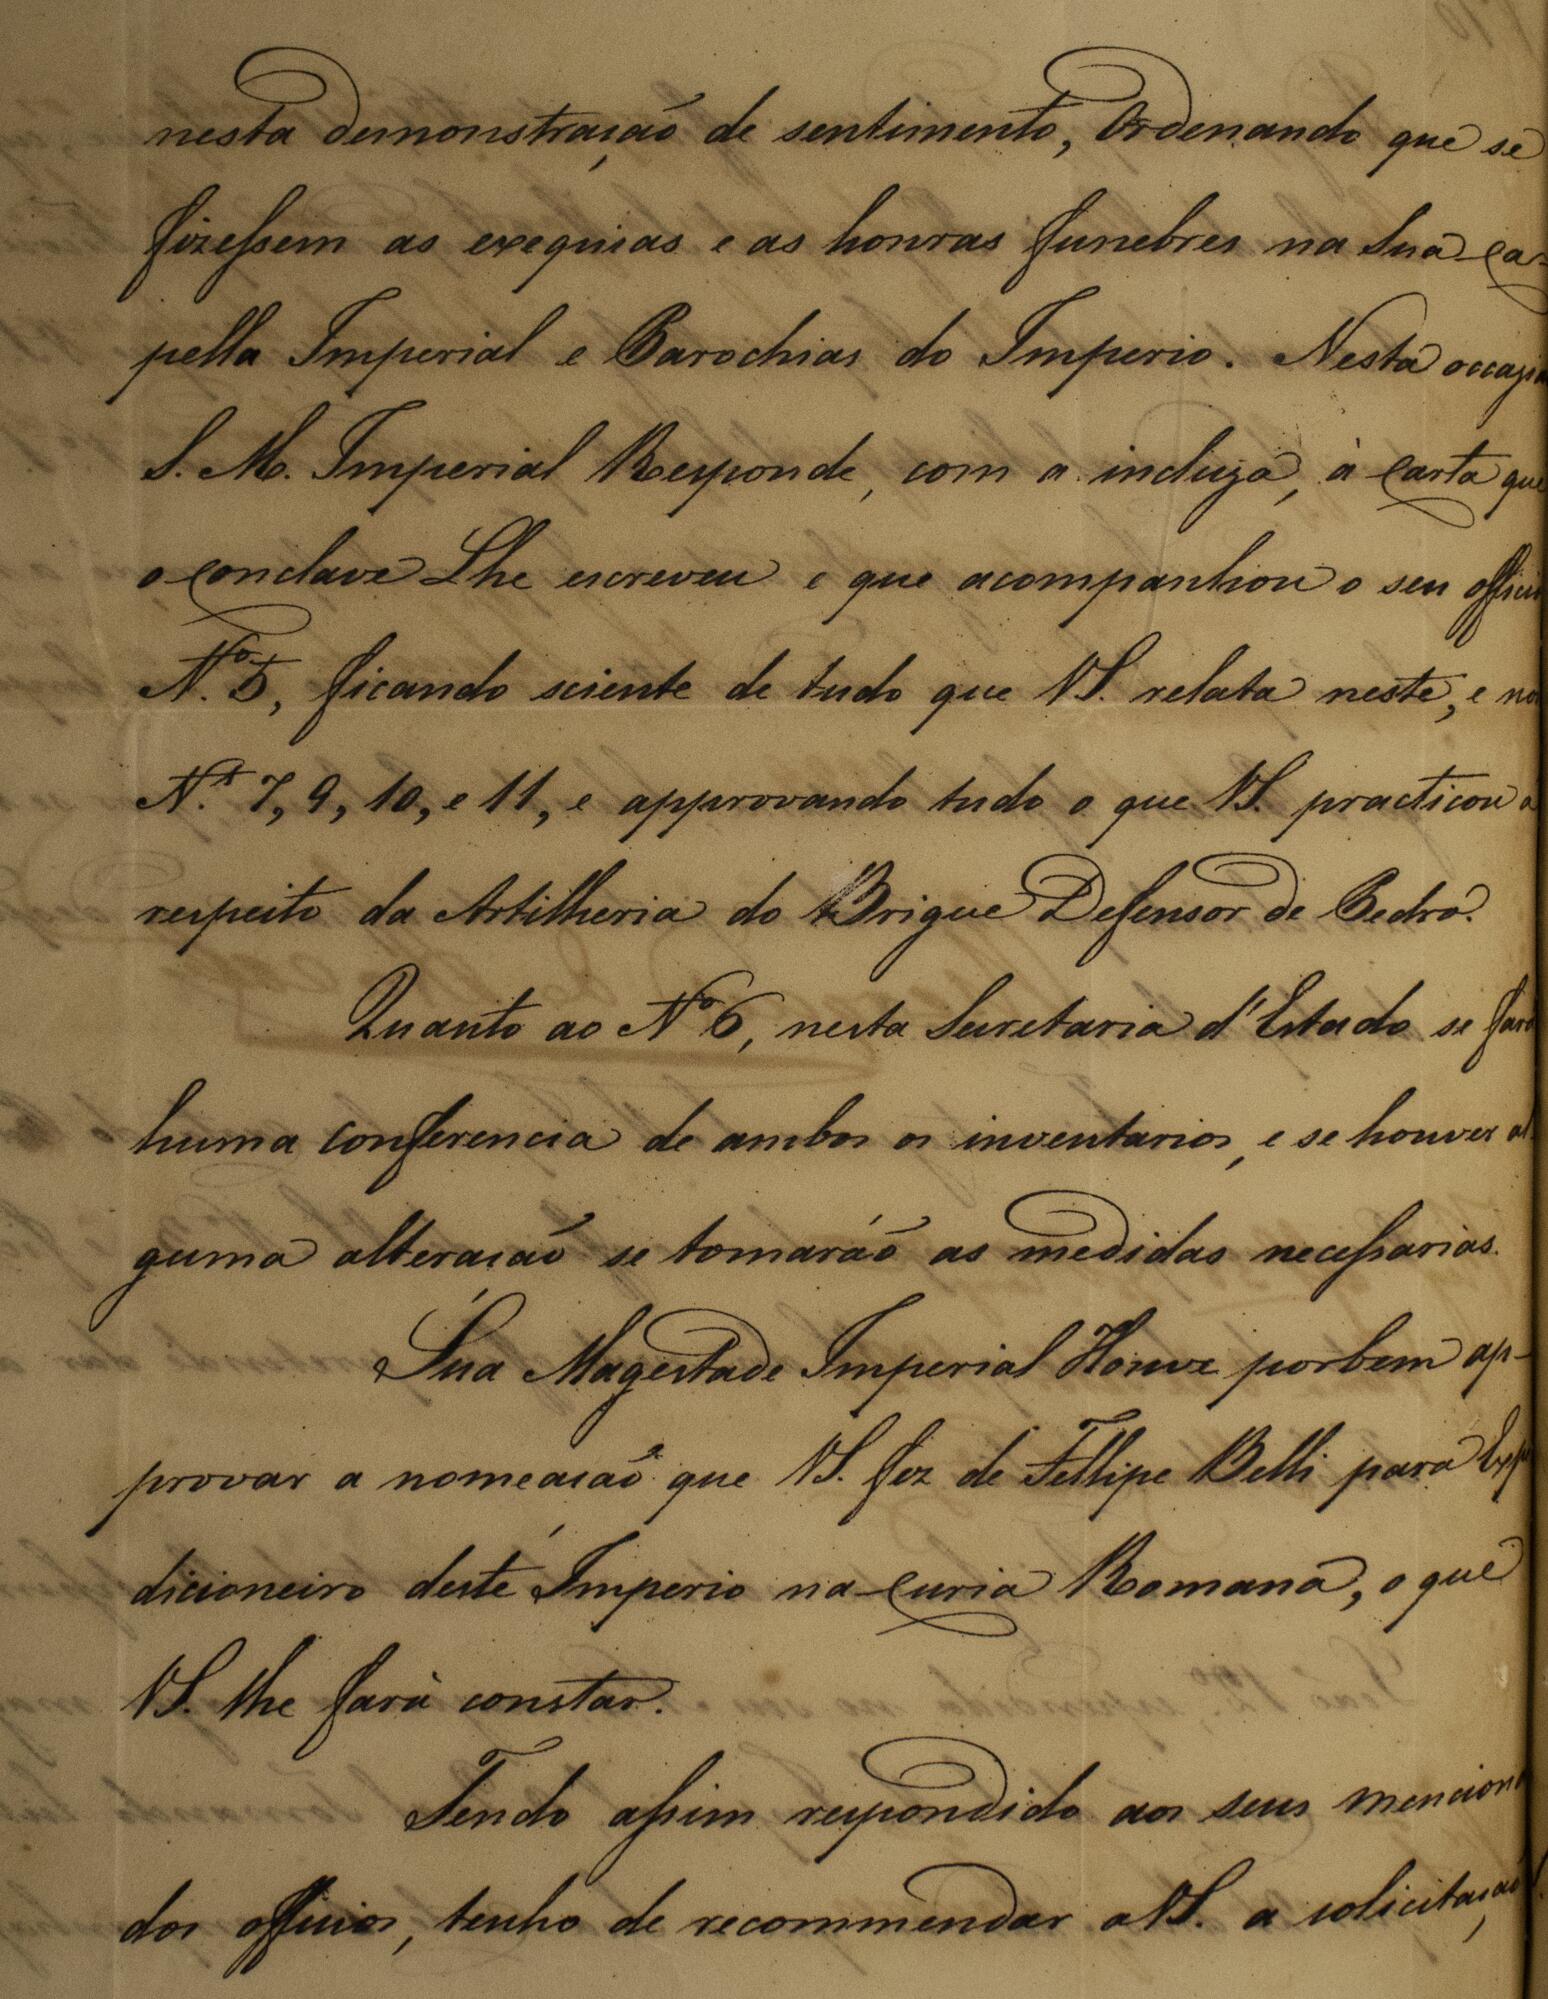 nesta demonstração de sentimento, Ordenando que se
fizessem as exequias e as honras funebres na Sua Ca-
pella Imperial e Parochias do Imperio. Nesta occazi
S. M. Imperial Responde, com a incluza, à Carta que
o Conclave Lhe escreveu e que acompanhou o seu officio
N.º 5, ficando sciente de tudo que VS. relata neste, e no
N.s 7, 9, 10, e 11, e approvando tudo o que VS. practicou a
respeito da Artilheria do Brigue Defensor de Pedro.
Quanto ao Nº 6, nesta Secretaria d'Estado se fará
huma conferencia de ambos os inventarios, e se houver al-
guma alteração se tomaráõ as medidas necessarias.
Sua Magestade Imperial Houve por bem ap-
provar a nomeação que VS. fez de Fellipe Belli para Expe
dicioneiro deste Imperio na Curia Romana, o que
VS. lhe fará constar.
Tendo assim respondido aos seus menciona
dos officios, tenho de recommendar a VS. a solicitação